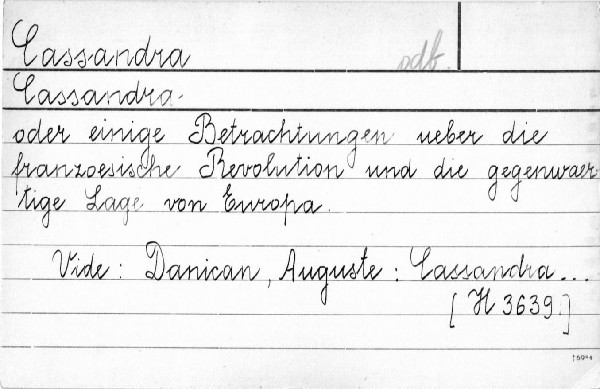 Cassandra odb.
Cassandra.
oder einige Betrachtungen ueber die
franzoesische Revolution und die gegenwaer-
tige Lage von Europa.
Vide: Danican, Auguste: Cassandra...
[H 3639.]